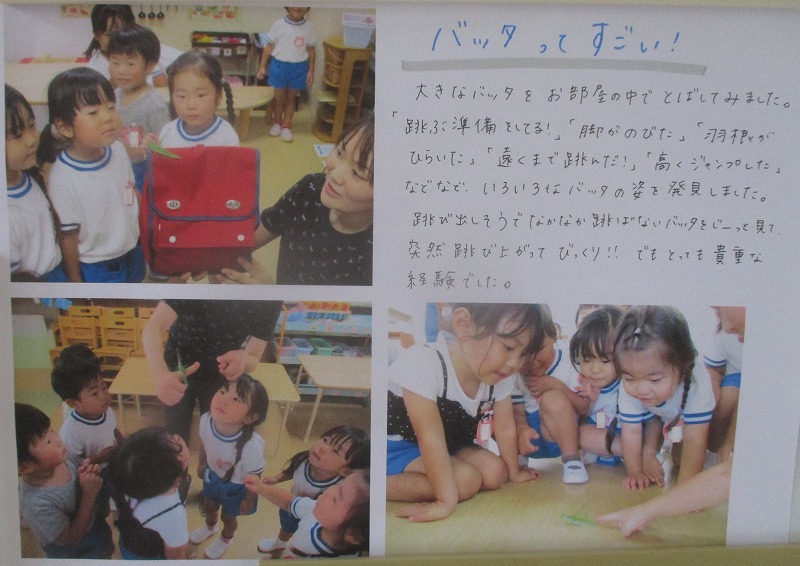 バッタってすごい!
大きなバッタをお部屋の中でとばしてみました。
「跳ぶ準備をしてる!」「脚がのびた」「羽根が
ひらいた」「遠くまで跳んだ!」「高くジャンプした」
などなど、いろいろなバッタの姿を発見しました。
跳び出しそうでなかなか跳ばないバッタをじーっと見て、
突然跳び上がってびっくり!! でもとっても貴重な
経験でした。